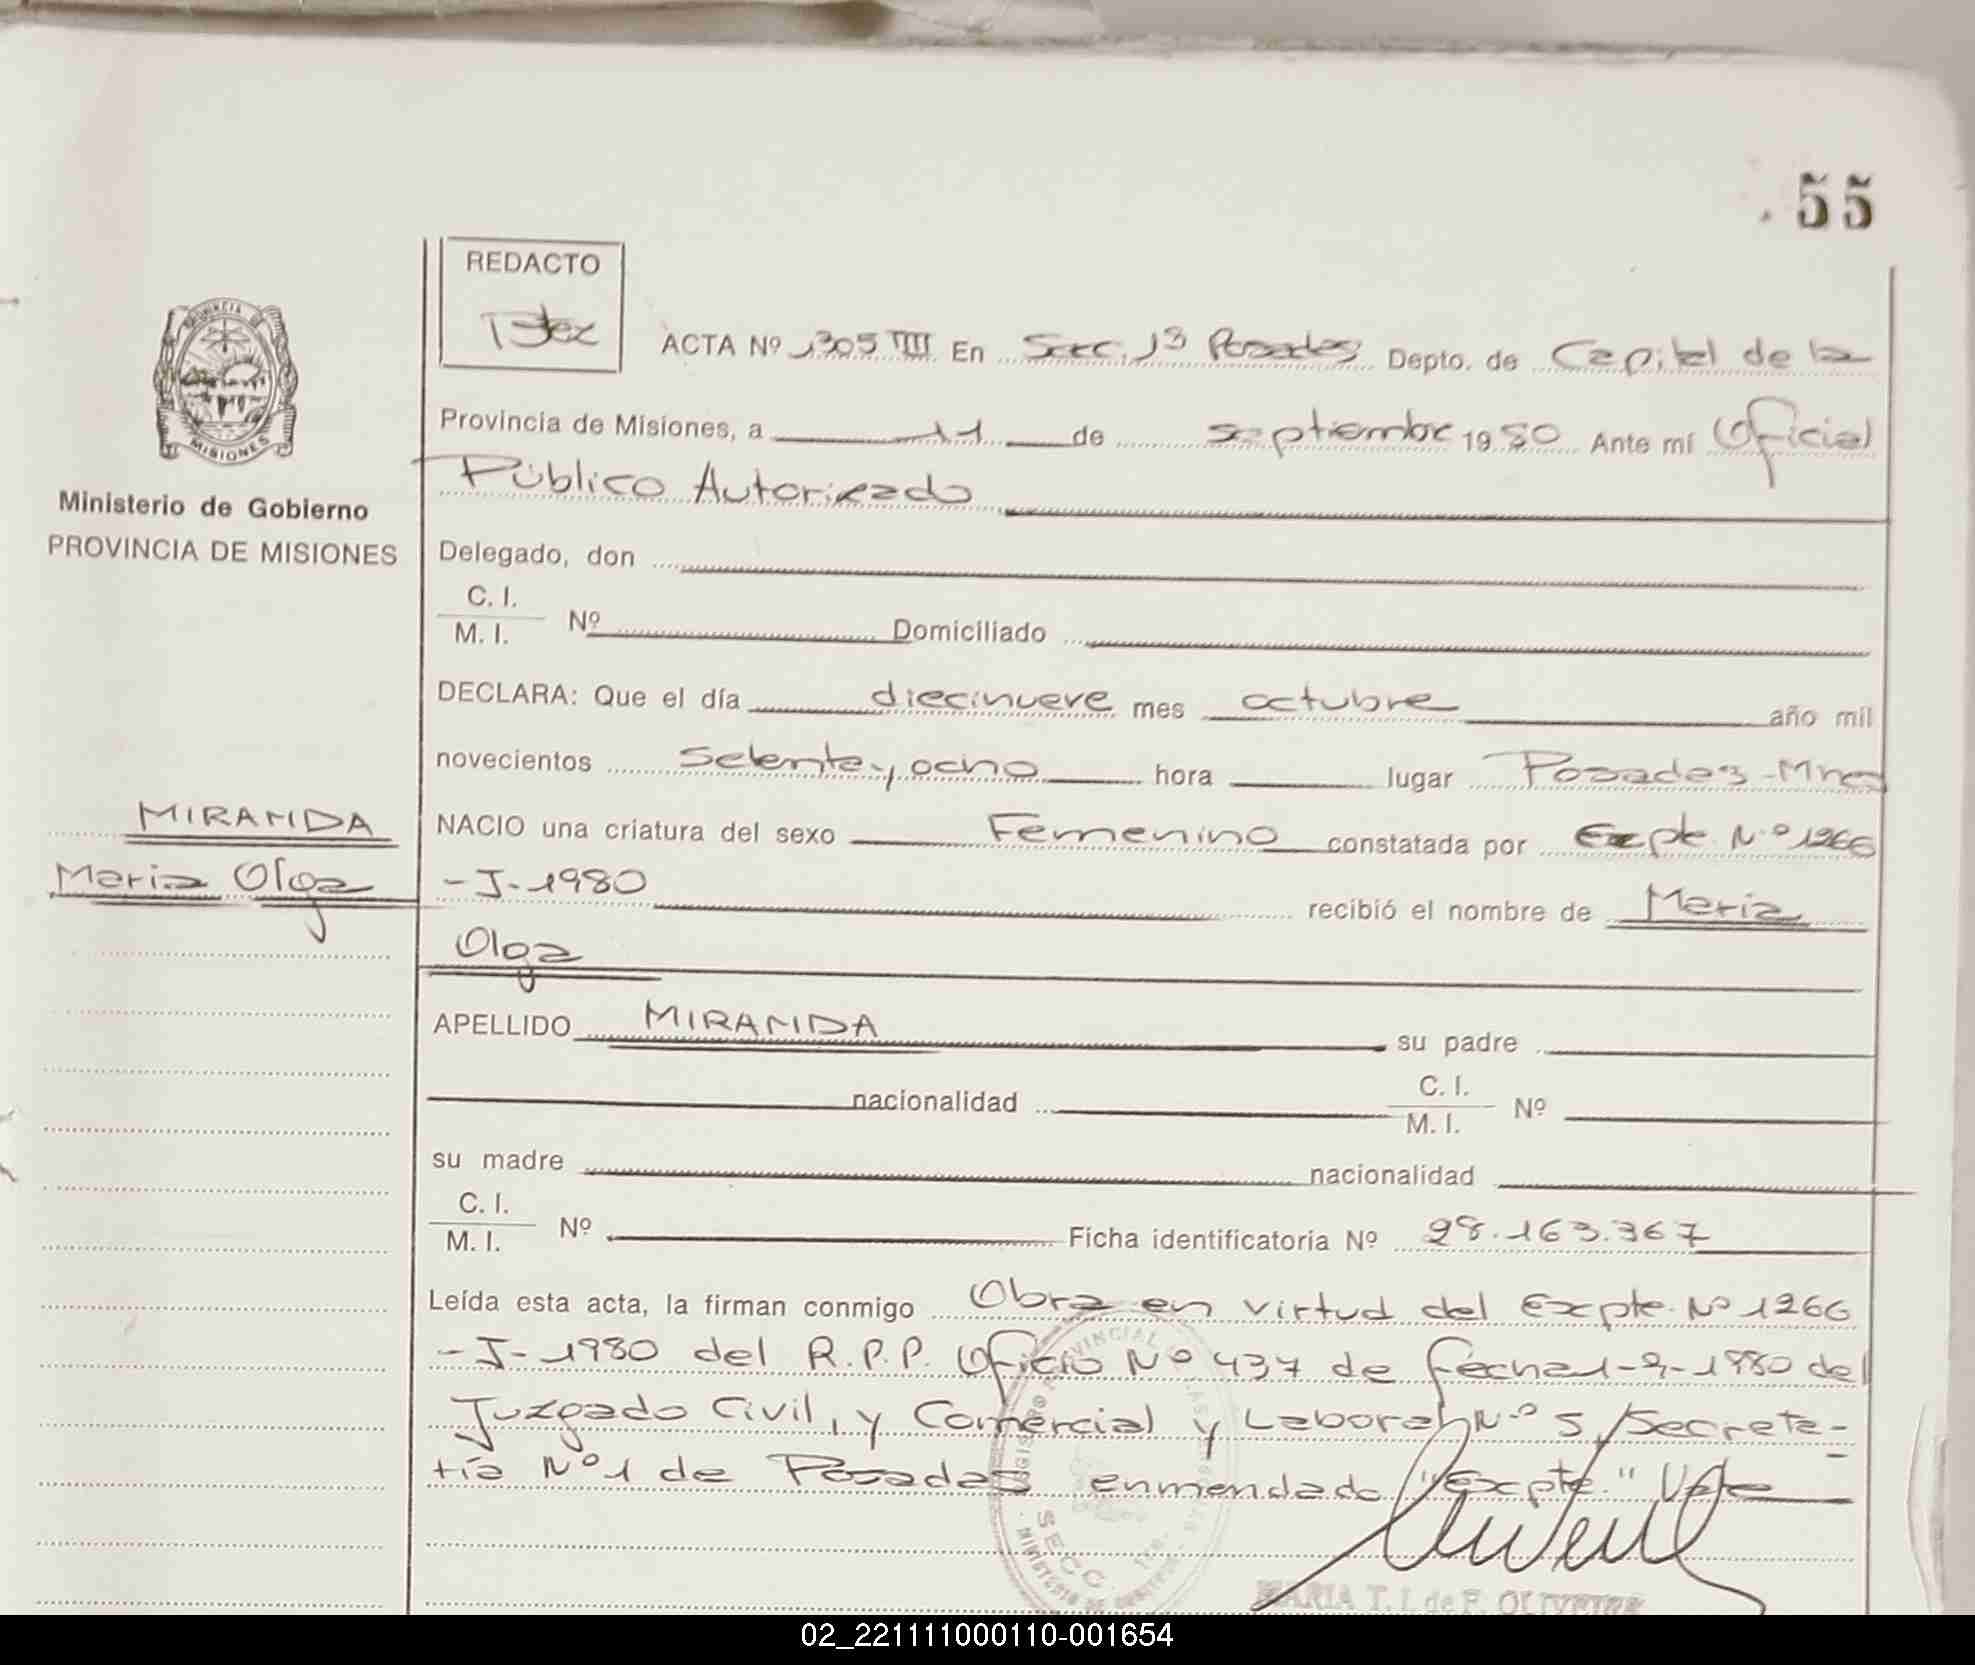 55
REDACTO
ACTA Nº 1305 TIII En Secc. 1ª Posadas Depto. de Capital de la
Provincia de Misiones, a 11 de septiembre 1980 Ante mí Oficial
Público Autorizado
Ministerio de Gobierno
PROVINCIA DE MISIONES
Delegado, don
C. I.
M. I. Nº Domiciliado
DECLARA: Que el día diecinueve mes octubre año mil
novecientos setenta y ocho hora lugar Posadas-Mnes
MIRANDA
NACIO una criatura del sexo Femenino constatada por Expte. Nº 1266
Maria Olga
-J-1980 recibió el nombre de Maria
Olga
APELLIDO MIRANDA su padre
nacionalidad C. I.
M. I. Nº
su madre nacionalidad
C. I.
M. I. Nº Ficha identificatoria Nº 28.163.367
Leída esta acta, la firman conmigo Obra en virtud del Expte. Nº 1266
-J-1980 del R.P.P. Oficio Nº 437 de fecha 1-9-1980 del
Juzgado Civil, y Comercial y Laboral Nº 5, Secreta-
ría Nº 1 de Posadas enmendado "Expte." Vale
SECC. 1ra.
MARIA T. I. de F. OLIVEIRA
02_221111000110-001654